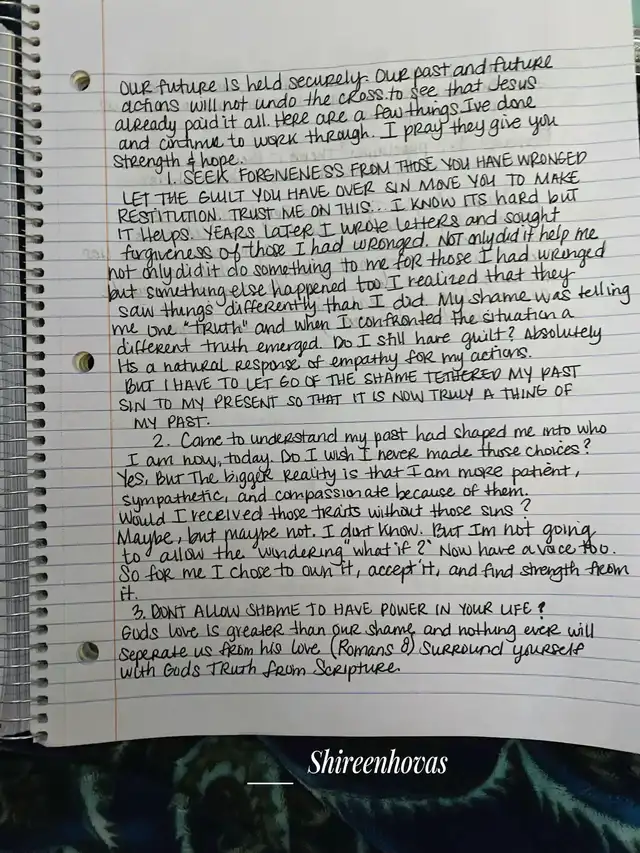 OUR future IS held securely. Our past and future
actions will not undo the cross. to see that Jesus
already paid it all. Here are a few things I've done
and continue to work through. I pray they give you
Strength & hope.
1. SEEK FORGIVENESS FROM THOSE YOU HAVE WRONGED
LET THE GUILT YOU HAVE OVER SIN MOVE YOU TO MAKE
RESTITUTION. TRUST ME ON THIS... I KNOW ITS hard but
IT HELPS. YEARS LATER I WROTE LETTERS and sought
forgiveness of those I had wronged. NOT only did it help me
not only did it do something to me for those I had wronged
but something else happened too I realized that they
saw things differently than I did. My shame was telling
me one "truth" and when I confronted the situation a
different truth emerged. Do I still have guilt? Absolutely
Its a natural response of empathy for my actions.
BUT I HAVE TO LET GO OF THE SHAME TETHERED MY PAST
SIN TO MY PRESENT SO THAT IT IS NOW TRULY A THING OF
MY PAST.
2. Came to understand my past had shaped me into who
I am now, today. Do I wish I never made those choices?
Yes, But The bigger Reality is that I am more patient,
sympathetic, and compassionate because of them.
Would I received those traits without those sins?
Maybe, but maybe not. I dont know. But Im not going
to allow the "wondering" what if?" Now have a voice too.
So for me I chose to own it, accept it, and find strength from
it.
3. DONT ALLOW SHAME TO HAVE POWER IN YOUR LIFE?
Gods love is greater than our shame and nothing ever will
seperate us from his love (Romans 8) Surround yourself
with Gods Truth from Scripture.
Shireenhovas